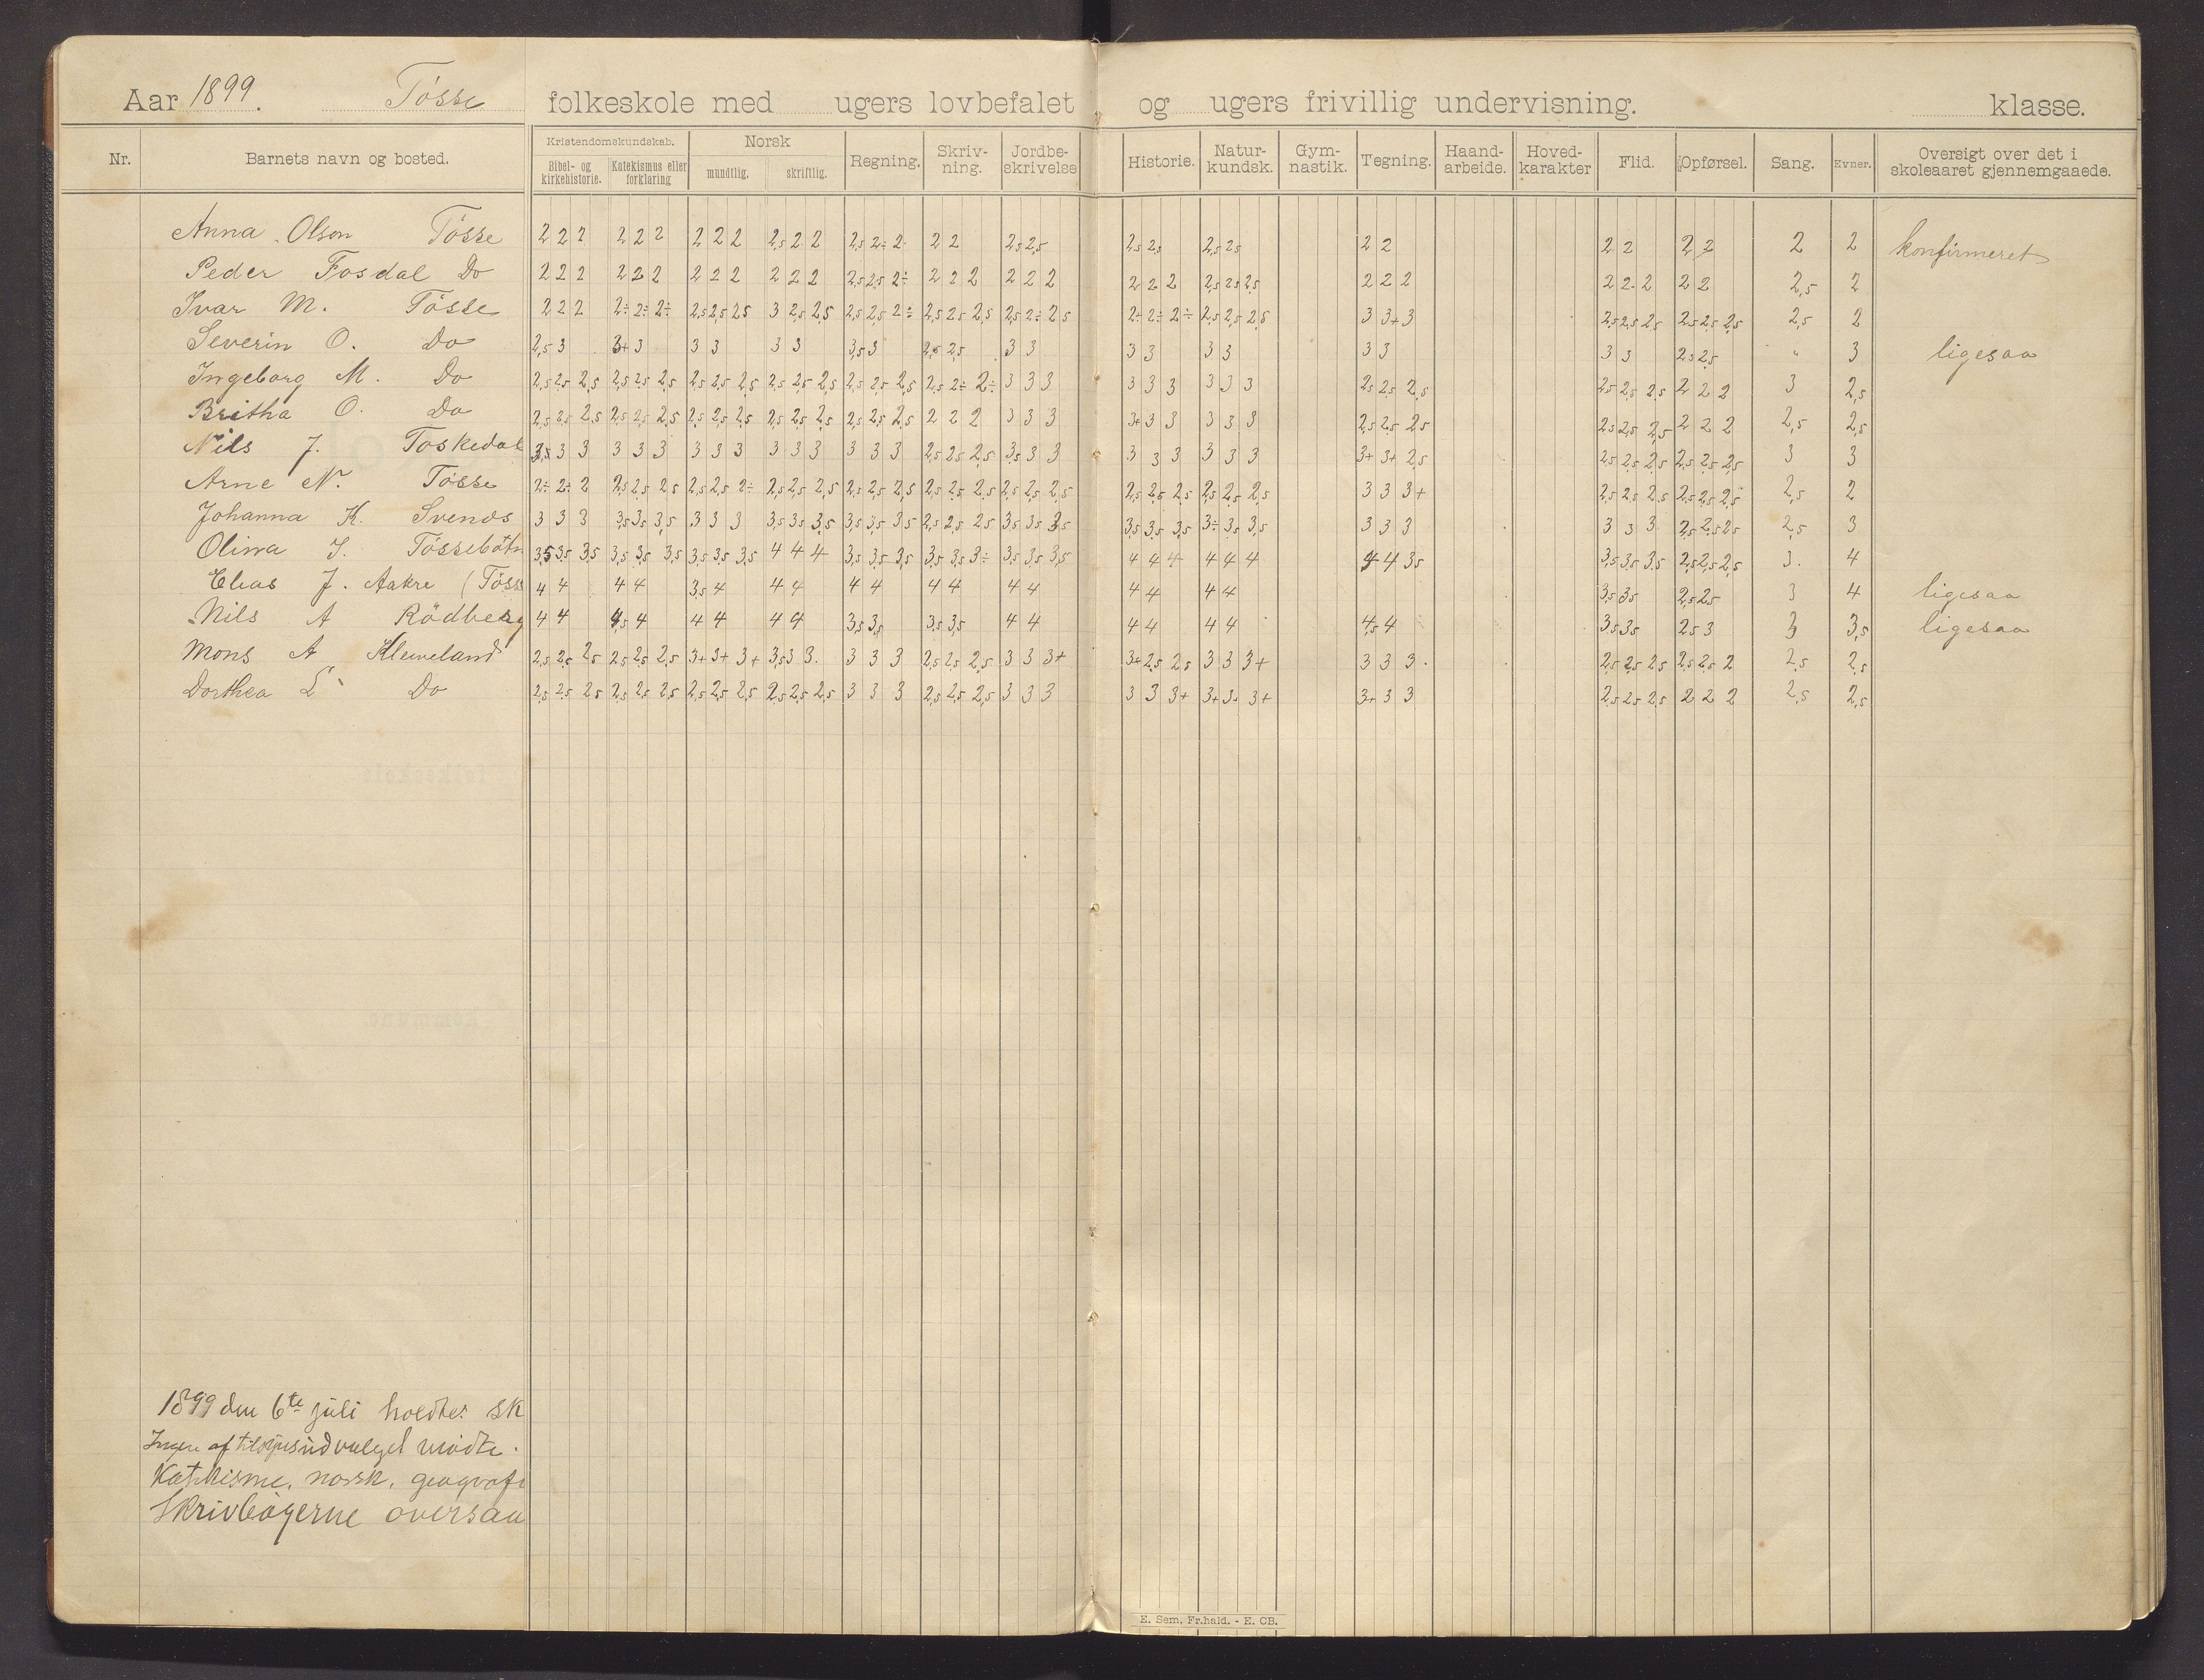 Aar 1899. Tösse folkeskole med ugers lovbefalet og ugers frivillig undervisning. klasse.
Nr. Barnets navn og bosted. Kristendomskundskab. Bibel- og kirkehistorie. Katekismus eller forklaring Norsk mundtlig. skriftlig. Regning. Skriv-ning. Jordbe-skrivelse Historie. Natur-kundsk. Gym-nastik. Tegning. Haand-arbeide. Hoved-karakter Flid. Opførsel. Sang. Evner. Oversigt over det i skoleaaret gjennemgaaede.
Anna Olson Tösse 2 2 2 2 2 2 2 2 2 2,5 2 2 2,5 2÷ 2 2 2 2,5 2,5 2,5 2,5 2,5 2,5 2 2 2 2 2 2 2 2 konfirmeret
Peder Fosdal Do 2 2 2 2 2 2 2 2 2 2 2 2 2,5 2,5 2÷ 2 2 2 2 2 2 2 2 2 2,5 2,5 2,5 2 2 2 2 2 2 2 2 2,5 2
Ivar M. Tösse 2 2 2 2÷ 2÷ 2÷ 2,5 2,5 2,5 3 2,5 2,5 2,5 2,5 2÷ 2,5 2,5 2,5 2,5 2÷ 2,5 2÷ 2÷ 2÷ 2,5 2,5 2,5 3 3+ 3 2,5 2,5 2,5 2,5 2,5 2,5 2,5 2
Severin O. Do 2,5 3 3+ 3 3 3 3 3 3,5 3 2,5 2,5 3 3 3 3 3 3 3 3 3 3 2,5 2,5 " 3 ligesaa
Ingeborg M. Do 2,5 2,5 2,5 2,5 2,5 2,5 2,5 2,5 2,5 2,5 2,5 2,5 2,5 2,5 2,5 2,5 2÷ 2÷ 3 3 3 3 3 3 3 3 3 2,5 2,5 2,5 2,5 2,5 2,5 2 2 2 3 2,5
Britha O. Do 2,5 2,5 2,5 2,5 2,5 2,5 2,5 2,5 2,5 2,5 2,5 2,5 2,5 2,5 2,5 2 2 2 3 3 3 3+ 3 3 3 3 3 2,5 2,5 2,5 2,5 2,5 2,5 2 2 2 2,5 2,5
Nils J. Toskedal 3,5 3 3 3 3 3 3 3 3 3 3 3 3 3 3 2,5 2,5 2,5 3,5 3 3 3 3 3 3 3 3 3+ 3+ 2,5 2,5 2,5 2,5 2,5 2,5 2,5 3 3
Arne N. Tösse 2÷ 2÷ 2 2,5 2,5 2,5 2,5 2,5 2÷ 2,5 2,5 2,5 2,5 2,5 2,5 2,5 2,5 2,5 2,5 2,5 2,5 2,5 2,5 2,5 2,5 2,5 2,5 3 3 3+ 2,5 2,5 2,5 2,5 2,5 2,5 2,5 2
Johanna K. Svends 3 3 3 3,5 3,5 3,5 3 3 3 3,5 3,5 3,5 3,5 3,5 3,5 2,5 2,5 2,5 3,5 3,5 3,5 3,5 3,5 3,5 3÷ 3,5 3,5 3 3 3 3 3 3 2,5 2,5 2,5 2,5 3
Olina J. Tössebötn 3,5 3,5 3,5 3,5 3,5 3,5 3,5 3,5 3,5 4 4 4 3,5 3,5 3,5 3,5 3,5 3÷ 3,5 3,5 3,5 4 4 4 4 4 4 4 4 3,5 3,5 3,5 3,5 2,5 2,5 2,5 3. 4
Elias J. Aakre (Töss 4 4 4 4 3,5 4 4 4 4 4 4 4 4 4 4 4 4 4 3,5 3,5 2,5 2,5 3 4 ligesaa
Nils A Rödberg 4 4 4,5 4 4 4 4 4 3,5 3,5 3,5 3,5 4 4 4 4 4 4 4,5 4 3,5 3,5 2,5 3 3 3,5 ligesaa
Mons A Kleiveland 2,5 2,5 2,5 2,5 2,5 2,5 3+ 3+ 3+ 3,5 3 3. 3 3 3 2,5 2,5 2,5 3 3 3+ 3+ 2,5 2,5 3 3 3+ 3 3 3. 2,5 2,5 2,5 2,5 2,5 2 2,5 2,5
Dorthea L Do 2,5 2,5 2,5 2,5 2,5 2,5 2,5 2,5 2,5 2,5 2,5 2,5 3 3 3 2,5 2,5 2,5 3 3 3 3 3 3+ 3+ 3+ 3+ 3+ 3 3 2,5 2,5 2,5 2 2 2 2,5 2,5
1899 den 6te juli holdtes sk
Ingen af tilsynsudvalget mödte.
Katekisme, norsk, geografi
Skrivbögerne oversaa
E. Sem, Fr.hald. - E. CB.